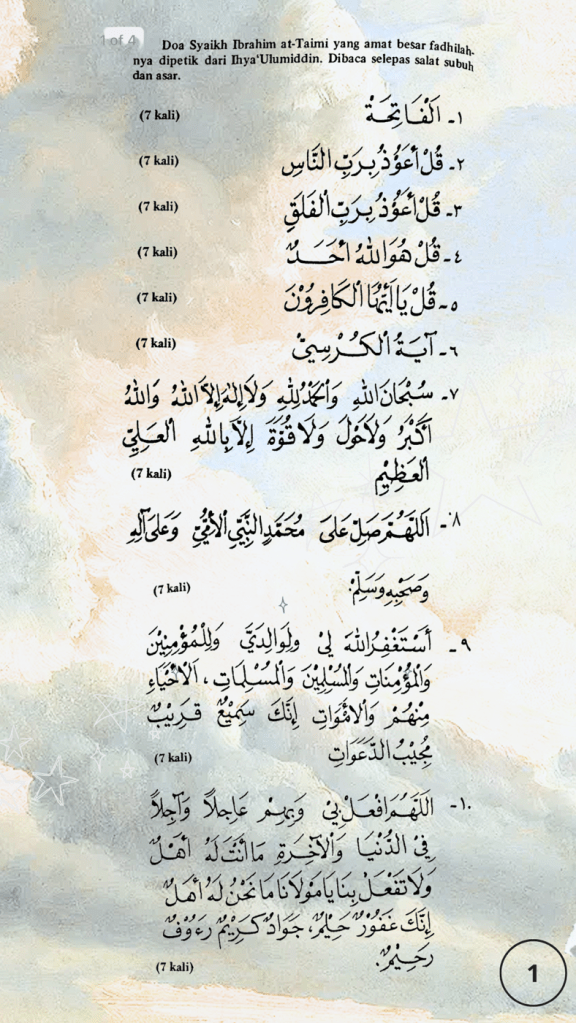 1 of 4
Doa Syaikh Ibrahim at-Taimi yang amat besar fadhilah-
nya dipetik dari Ihya'Ulumiddin. Dibaca selepas salat subuh
dan asar.
١- اَلْفَاتِحَةْ (7 kali)
٢- قُلْ أَعُوْذُ بِرَبِّ النَّاسِ (7 kali)
٣- قُلْ أَعُوْذُ بِرَبِّ الْفَلَقِ (7 kali)
٤- قُلْ هُوَ اللهُ أَحَدٌ (7 kali)
٥- قُلْ يَا أَيُّهَا الْكَافِرُوْنَ (7 kali)
٦- آيَةُ الْكُرْسِيّ (7 kali)
٧- سُبْحَانَ اللهِ وَالْحَمْدُ لِلّٰهِ وَلَا إِلٰهَ إِلَّا اللهُ وَاللهُ
أَكْبَرُ وَلَاحَوْلَ وَلَا قُوَّةَ إِلَّا بِاللهِ الْعَلِيِّ
الْعَظِيْمِ (7 kali)
٨- اَللّٰهُمَّ صَلِّ عَلَى مُحَمَّدٍ النَّبِيِّ الْأُمِّيِّ وَعَلَى آلِهِ
وَصَحْبِهِ وَسَلِّمْ. (7 kali)
٩- أَسْتَغْفِرُ اللهَ لِيْ وَلِوَالِدَيَّ وَلِلْمُؤْمِنِيْنَ
وَالْمُؤْمِنَاتِ وَالْمُسْلِمِيْنَ وَالْمُسْلِمَاتِ، اَلْأَحْيَاءِ
مِنْهُمْ وَالْأَمْوَاتِ إِنَّكَ سَمِيْعٌ قَرِيْبٌ
مُجِيْبُ الدَّعَوَاتِ (7 kali)
١٠- اَللّٰهُمَّ افْعَلْ بِيْ وَبِهِمْ عَاجِلًا وَآجِلًا
فِي الدُّنْيَا وَالْآخِرَةِ مَا أَنْتَ لَهُ أَهْلٌ
وَلَا تَفْعَلْ بِنَا يَا مَوْلَانَا مَا نَحْنُ لَهُ أَهْلٌ
إِنَّكَ غَفُوْرٌ حَلِيْمٌ، جَوَادٌ كَرِيْمٌ رَءُوْفٌ
رَحِيْمٌ. (7 kali)
1